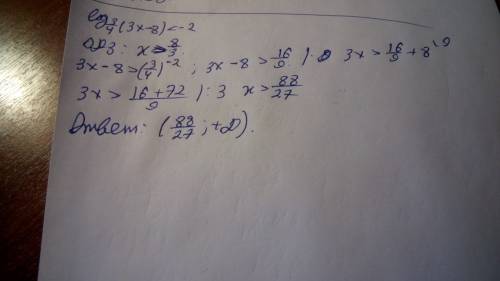 log_{3/4}(3x-8) < -2
ОДЗ: x > 8/3.
3x-8 > (3/4)^{-2} ; 3x-8 > 16/9 3x > 16/9 + 8^{\9}
3x > (16+72)/9 | : 3 x > 88/27
Ответ: (88/27 ; +∞).